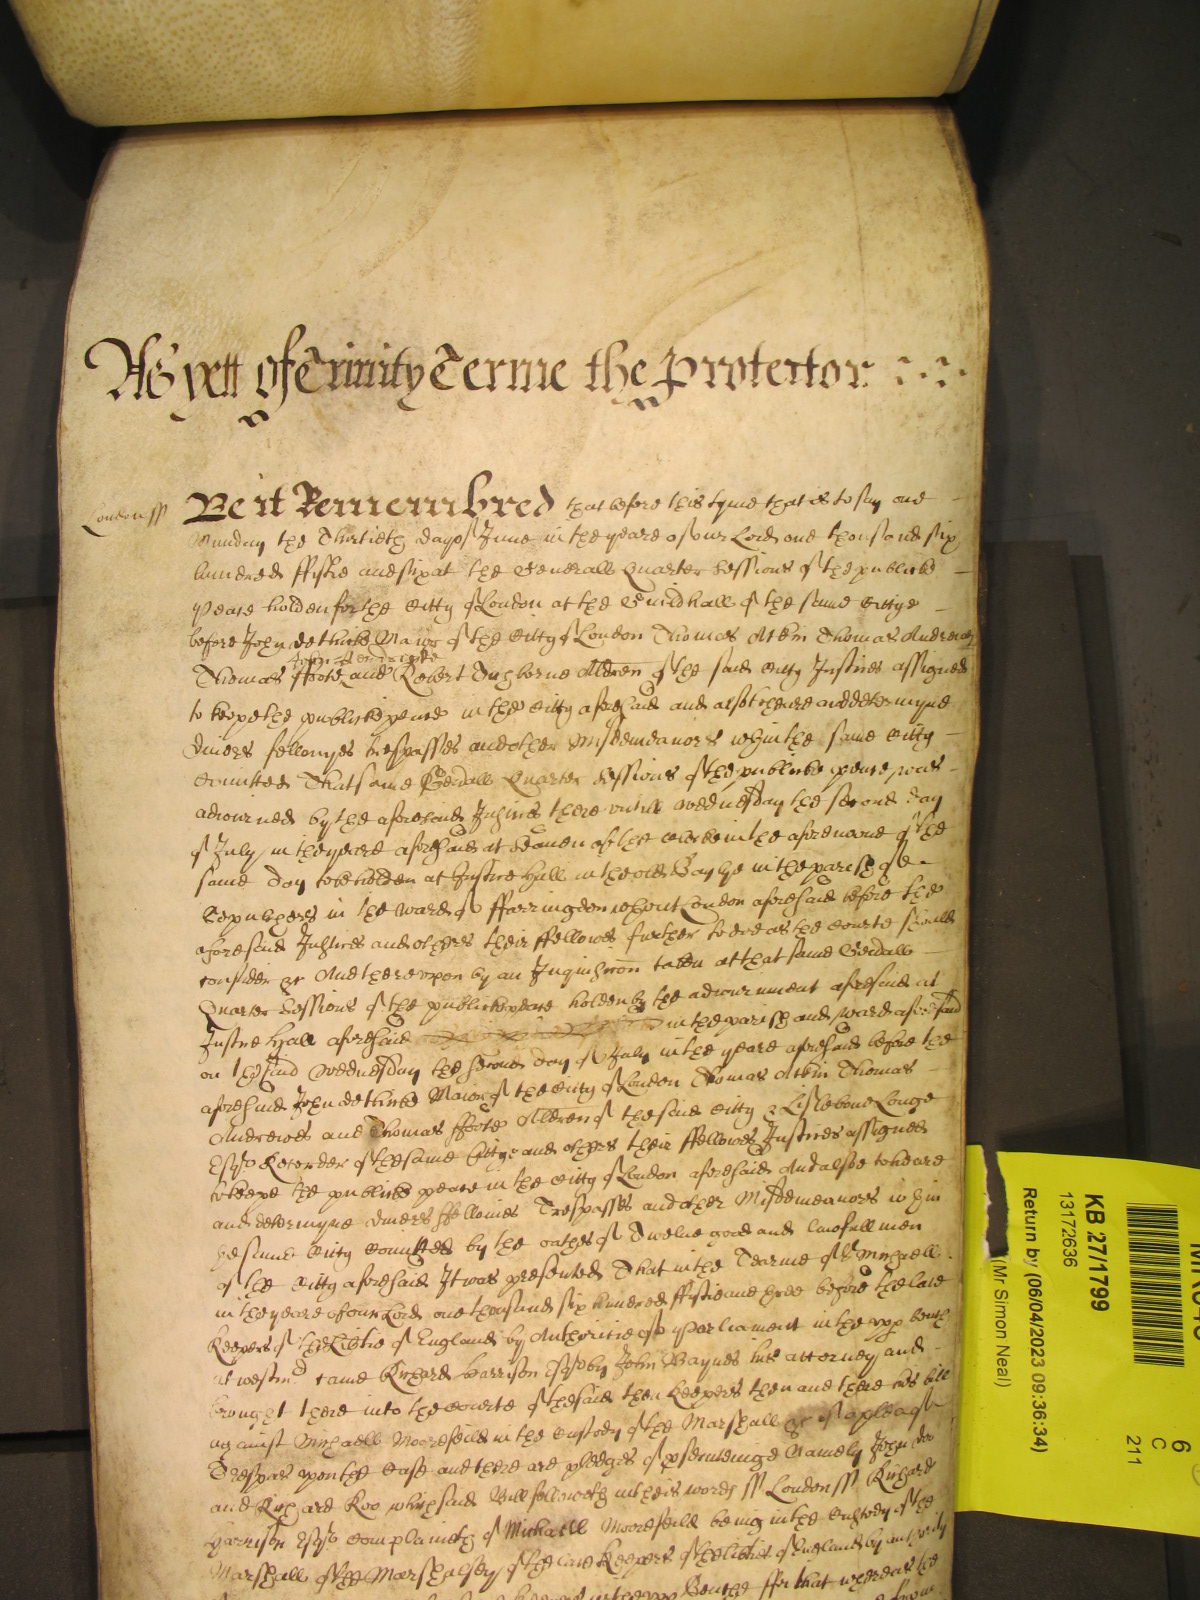 As yett of Trinity Terme the Protector
London ss Be it Remembred that before this tyme that is to say one
Munday the Thirtieth day of June in the yeare of our Lord one thousand six
hundred fiftie and six at the Generall Quarter Sessions of the publicke
peace holden for the Citty of London at the Guildhall of the same Cittye
before John dethicke Maior of the Citty of London Thomas Atkin Thomas Andrewes
Thomas ffoote and Robert Tichborne Aldren of the said Citty Justices assigned
to keepe the publicke peace in the Citty aforesaid and also to heare and determyne
divers fellonyes trespasses and other misdemeanors within the same Citty
Comitted That same Genrall Quarter Sessions of the publicke peace was
adiourned by the aforesaid Justices there untill Wednesday the second day
of July in the yeare aforesaid at Seaven of the clocke in the aforenoone of the
same day to be holden at Justice Hall in the old Bayly in the parish of
Sepulchers in the ward of ffarringdon without London aforesaid before the
aforesaid Justices and others their ffellowes further to doe as the Courte should
consider &c And thereupon by an Inquisicon taken at that same Genrall
Quarter Sessions of the publicke peace holden by the adiournment aforesaid at
Justice Hall aforesaid in the parish and ward aforesaid
on the said Wednesday the second day of July in the yeare aforesaid before the
aforesaid John dethicke Maior of the Citty of London Thomas Atkin Thomas
Andrewes and Thomas ffoote Aldren of the said Citty & Lislebone Longe
Esqr Recorder of the same Cittye and others their ffellowes Justices assigned
to keepe the publicke peace in the Citty of London aforesaid And alsoe to heare
and determyne divers ffellonies Trespasses and other Misdemeanors within
the same Citty Comitted by the oathes of Twelve good and lawfull men
of the Citty aforesaid It was presented That in the Tearme of St Michaell
in the yeare of our Lord one thousand six hundred fiftie and three before the late
Keepers of the Libtie of England by Authoritie of Parliament in the upp bench
at westmr came Richard Harrison Esqr by John Baynes his attorney and
brought there into the Courte of the said then Keepers then and there his bill
against Michaell Moorefeild in the custody of the Marshall &c of a plea of
Trespas upon the Case and there are pledges of prosecuteinge Namely John doo
and Richard Roo which said Bill followeth in theis words ss London ss Richard
Harrison Esqr Complaineth of Michaell Moorefeild being in the Custody of the
Marshall of the Marshalsey of the late Keepers of the libtie of England by authority
Bench ffor that whereas the
KB 27/1799
13172636
Return by (06/04/2023 09:36:34)
(Mr Simon Neal)
6
C
211